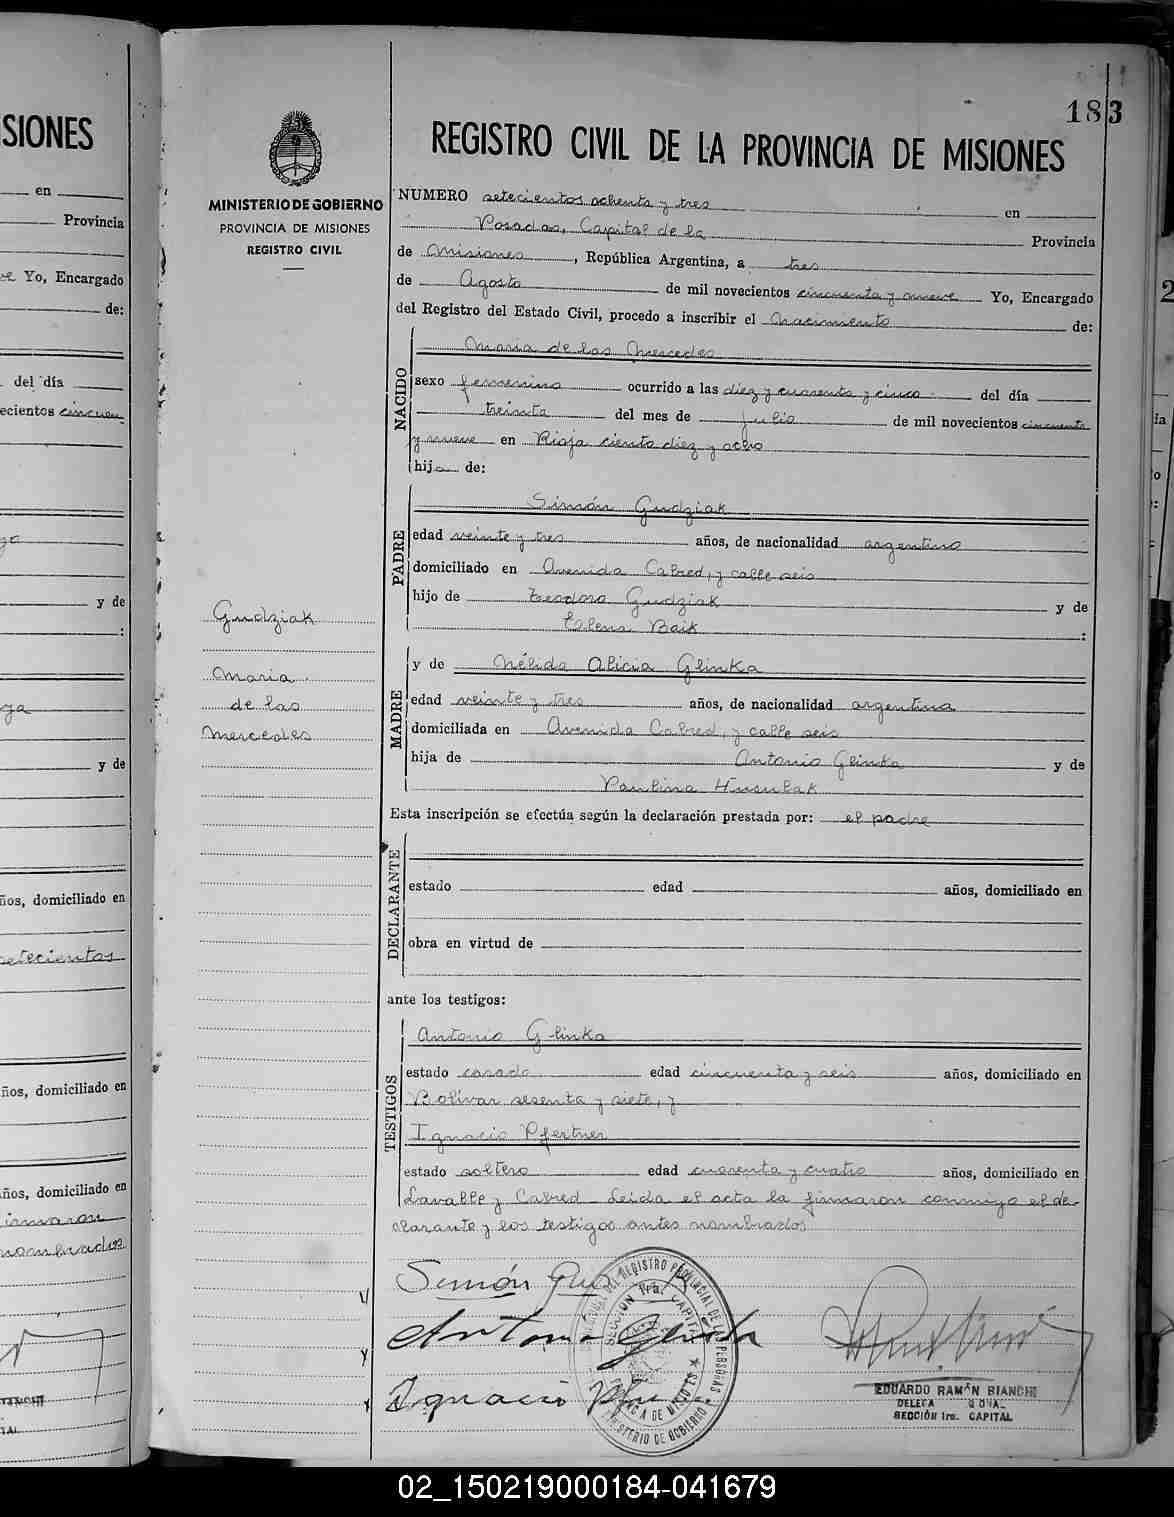 SIONES
en
Provincia
Yo, Encargado
de:
del día
ecientos cincuen
y de
:
y de
ños, domiciliado en
setecientos
ños, domiciliado en
ños, domiciliado en
firmaron
nombrados
183
REGISTRO CIVIL DE LA PROVINCIA DE MISIONES
MINISTERIO DE GOBIERNO
PROVINCIA DE MISIONES
REGISTRO CIVIL
Gudziak
Maria
de las
Mercedes
NUMERO setecientos ochenta y tres en
Posadas, Capital de la Provincia
de Misiones, República Argentina, a tres
de Agosto de mil novecientos cincuenta y nueve Yo, Encargado
del Registro del Estado Civil, procedo a inscribir el Nacimiento de:
NACIDO
Maria de las Mercedes
sexo femenino ocurrido a las diez y cuarenta y cinco del día
treinta del mes de Julio de mil novecientos cincuenta
y nueve en Rioja ciento diez y ocho
hija de:
PADRE
Simón Gudziak
edad veinte y tres años, de nacionalidad argentino
domiciliado en Avenida Cabred, y calle seis
hijo de Teodoro Gudziak y de
Elena Baik :
MADRE
y de Nélida Alicia Glinka
edad veinte y tres años, de nacionalidad argentina
domiciliada en Avenida Cabred, y calle seis
hija de Antonio Glinka y de
Paulina Husulak
Esta inscripción se efectúa según la declaración prestada por: el padre
DECLARANTE
estado edad años, domiciliado en
obra en virtud de
ante los testigos:
TESTIGOS
Antonio Glinka
estado casado edad cincuenta y seis años, domiciliado en
Bolívar sesenta y siete, y
Ignacio Pfertner
estado soltero edad cuarenta y cuatro años, domiciliado en
Lavalle y Cabred - Leida el acta la firmaron conmigo el de-
clarante y los testigos antes nombrados
Simón
Antonio Glinka
Ignacio
SECCION 1ra. CAPITAL
MINISTERIO DE GOBIERNO
EDUARDO RAMÓN BIANCHI
SECCIÓN 1ra. CAPITAL
02_150219000184-041679